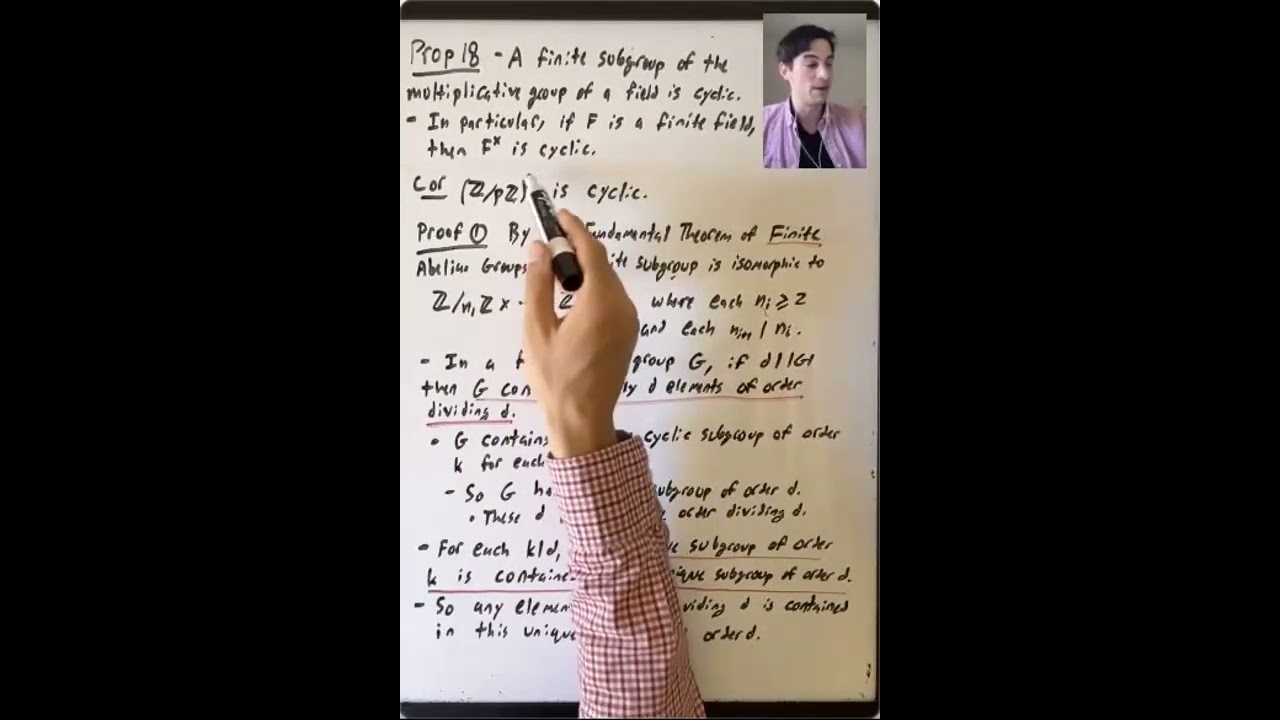 Prop 18 - A finite subgroup of the
multiplicative group of a field is cyclic.
- In particular, if F is a finite field,
then Fˣ is cyclic.
Cor (ℤ/pℤ) is cyclic.
Proof ① By Fundamental Theorem of Finite
Abelian Groups subgroup is isomorphic to
ℤ/n₁ℤ × ℤ where each nᵢ ≥ 2
and each nᵢ₊₁ | nᵢ.
- In a group G, if d||G|
then G d elements of order
dividing d.
• G contains cyclic subgroup of order
k for each
- So G subgroup of order d.
• These d order dividing d.
- For each k|d, subgroup of order
k is subgroup of order d.
- So any d is contained
in this order d.